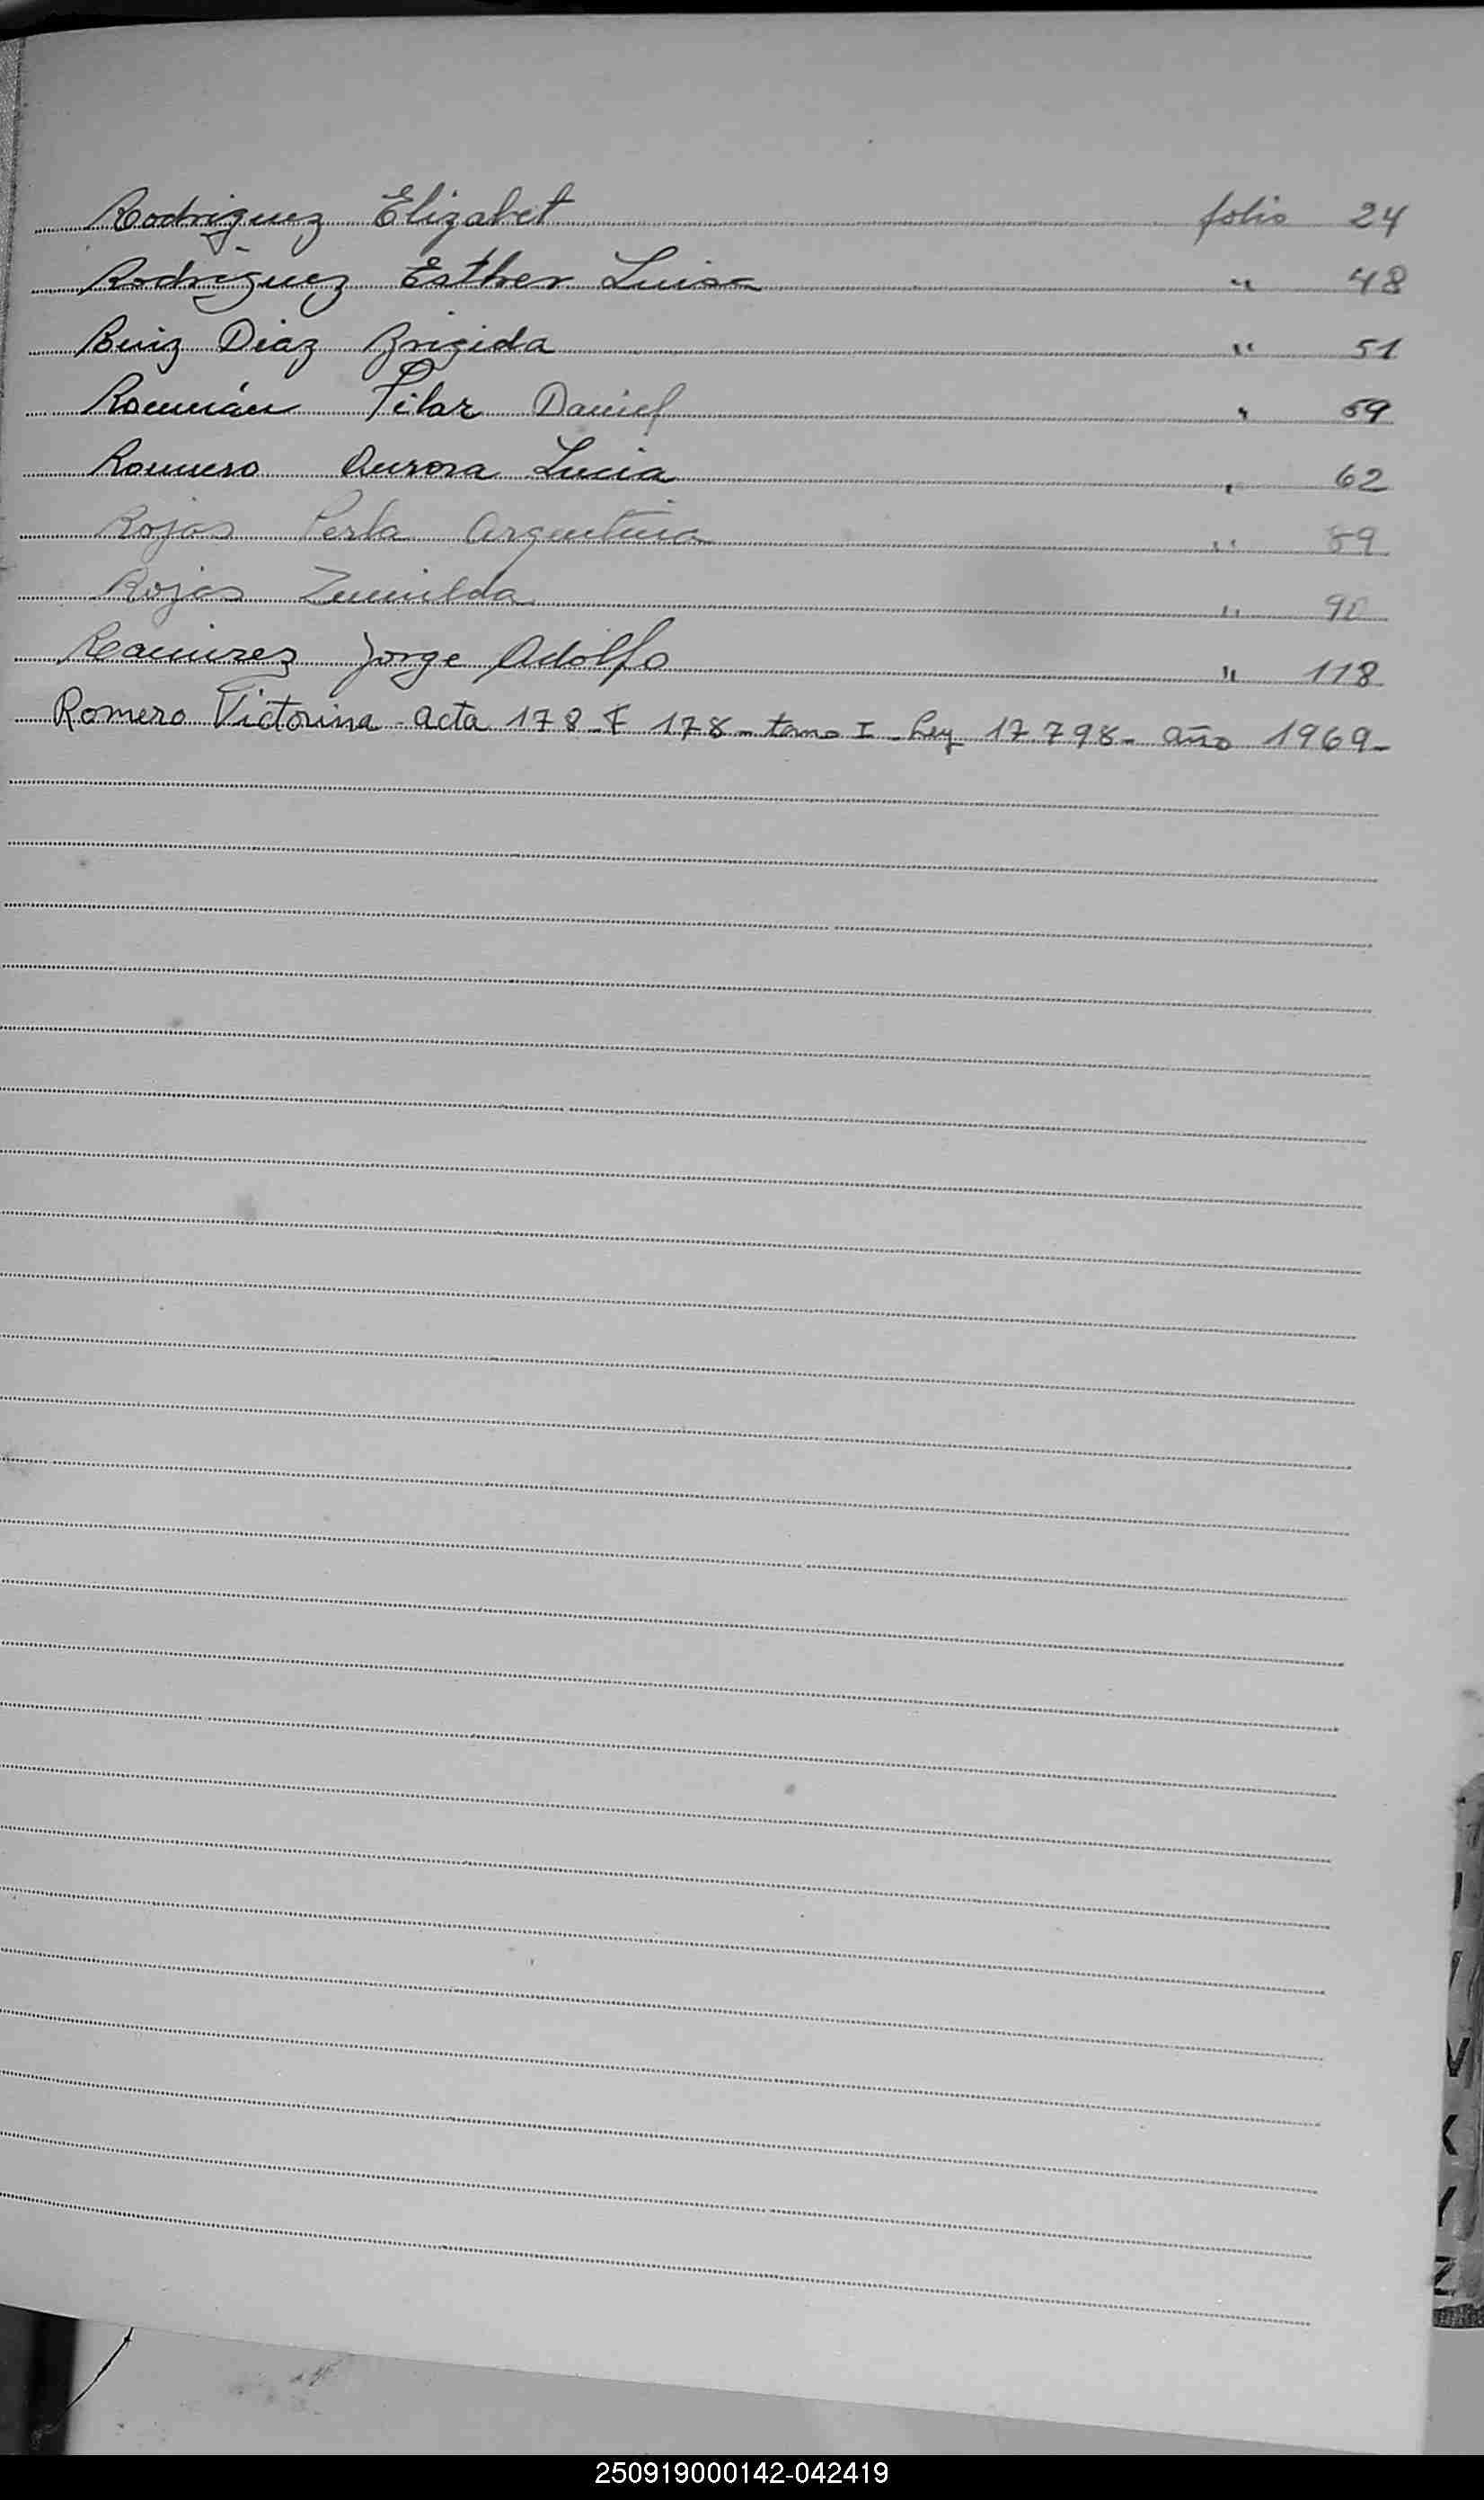 Rodriguez Elizabet folio 24
Rodriguez Esther Luisa " 48
Ruiz Diaz Brigida " 51
Román Pilar Daniel " 59
Romero Aurora Lucia " 62
Rojas Perla Argentina " 89
Rojas Zunilda " 90
Ramirez Jorge Adolfo " 118
Romero Victorina - acta 178 - F 178 - tomo I - Ley 17.798 - año 1969 -
V
K
Y
Z
250919000142-042419